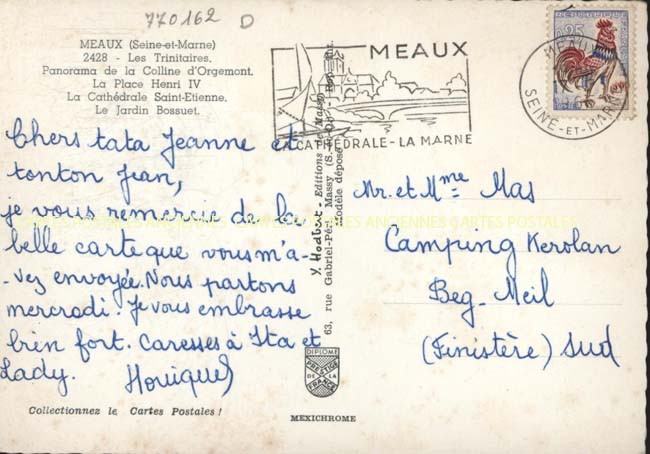 770162 D
MEAUX (Seine-et-Marne)
2428 - Les Trinitaires.
Panorama de la Colline d'Orgemont.
La Place Henri IV
La Cathédrale Saint-Etienne.
Le Jardin Bossuet.
MEAUX
CATHÉDRALE - LA MARNE
0,25
MEAUX
SEINE-ET-MARNE
Chers tata Jeanne et
tonton Jean,
je vous remercie de la
belle carte que vous m'a-
-vez envoyée. Nous partons
mercredi. Je vous embrasse
bien fort. Caresses à Ita et
Lady. Monique
Editions de Massy
63, rue Gabriel-Péri, Massy
Modèle déposé
Mr. et Mme Mas
Camping Kerolan
Beg-Meil
(Finistère) Sud
DIPLOME
PRESTIGE
DE LA
FRANCE
Collectionnez les Cartes Postales !
MEXICHROME
CARTES POSTALES ANCIENNES CARTES POSTALES